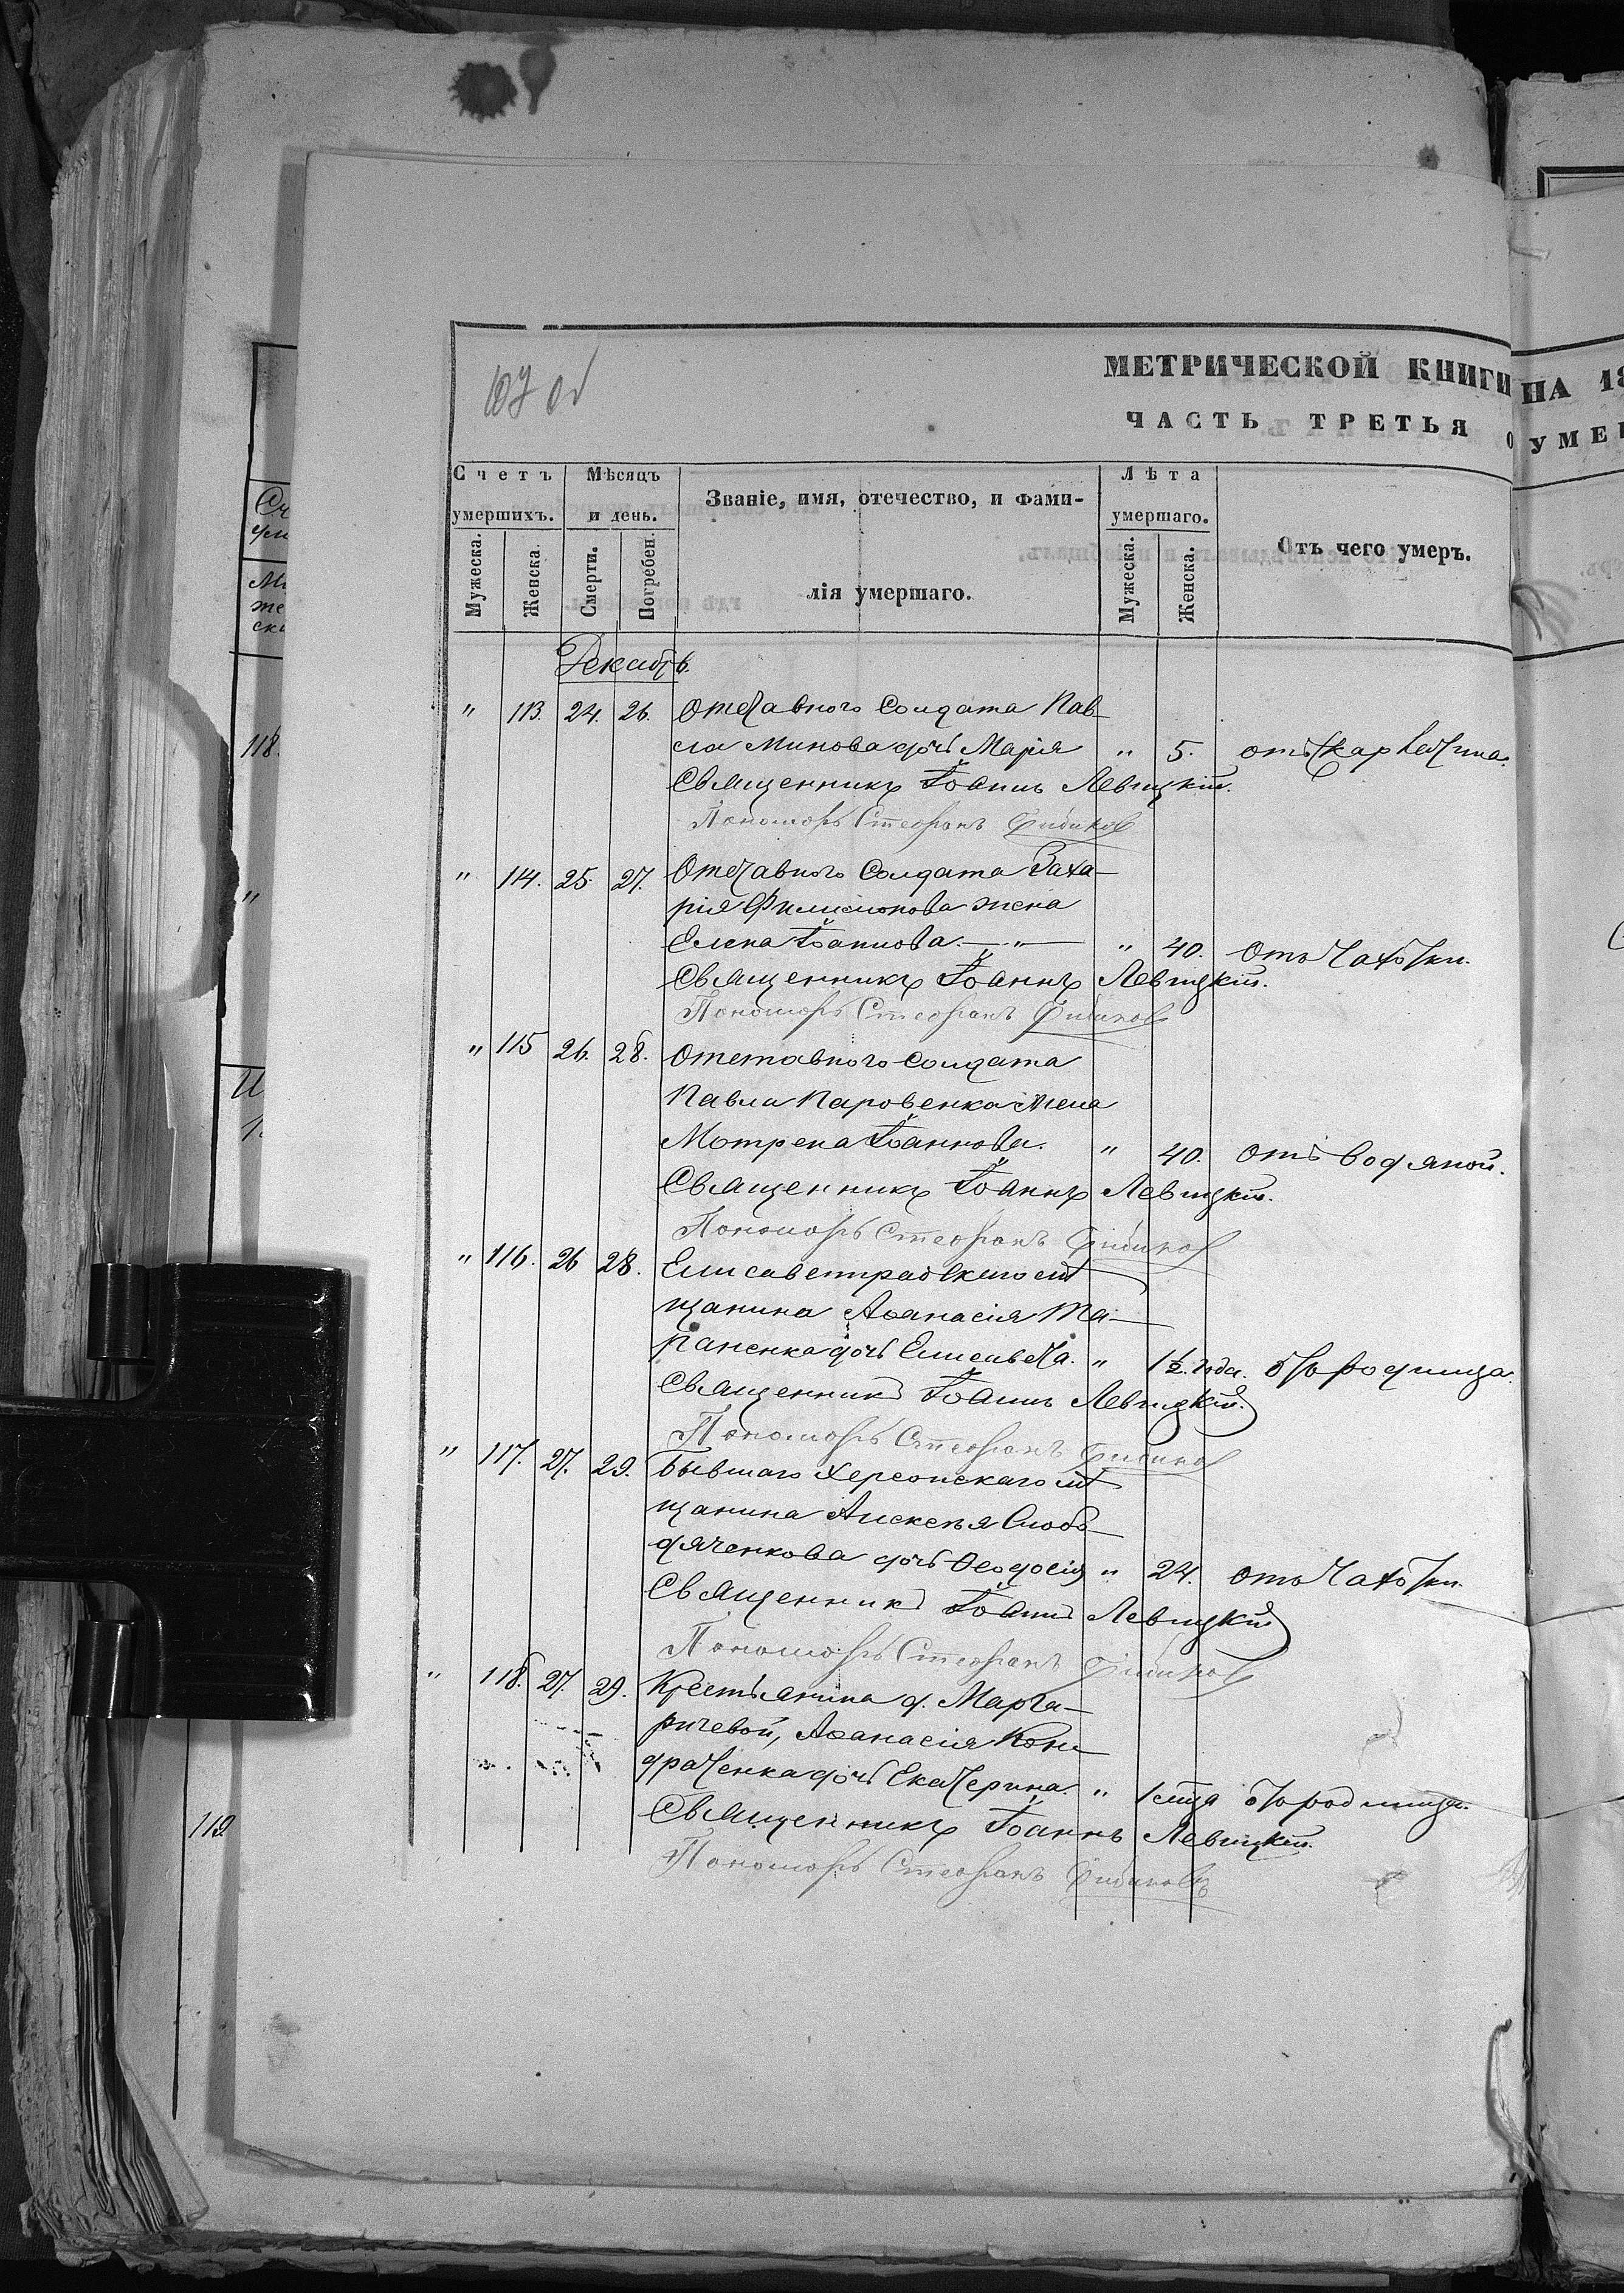 107 об
МЕТРИЧЕСКОЙ КНИГИ НА 18
ЧАСТЬ ТРЕТЬЯ О УМЕР
Счетъ умершихъ.
Мѣсяцъ и день.
Званіе, имя, отечество, и фами-
лія умершаго.
Лѣта умершаго.
Отъ чего умеръ.
Мужеска. Женска. Смерти. Погребен. Мужеска. Женска.
Декабрь.
" 113. 24. 26. Отставного Солдата Пав-
ла Минова дочь Марія " 5. отъ Скарлатина.
Священникъ Іоаннъ Левицкій.
Пономарь Стефанъ
" 114. 25. 27. Отставного Солдата Заха-
рія Филимонова жена
Елена Іоаннова. — " — " 40. Отъ Чахотки.
Священникъ Іоаннъ Левицкій.
Пономарь Стефанъ
" 115 26. 28. Отставного Солдата
Павла Паровенка жена
Мотрена Іоаннова. " 40. Отъ Водяной.
Священникъ Іоаннъ Левицкій.
Пономарь Стефанъ
" 116. 26 28. Елисаветградскаго мѣ
щанина Аѳанасія Та-
раненка дочь Елисавета. " 1½ года. отъ родимца.
Священникъ Іоаннъ Левицкій.
Пономарь Стефанъ
" 117. 27. 29. Бывшаго Херсонскаго мѣ
щанина Алексѣя Слобо-
дяченкова дочь Ѳеодосія " 24. отъ Чахотки.
Священникъ Іоаннъ Левицкій
Пономарь Стефанъ
" 118. 27. 29. Крестьянина д. Марга-
ричевой, Аѳанасія Кон-
дратенка дочь Екатерина. " 1 мѣца отъ родимца.
Священникъ Іоаннъ Левицкій.
Пономарь Стефанъ
118.
119